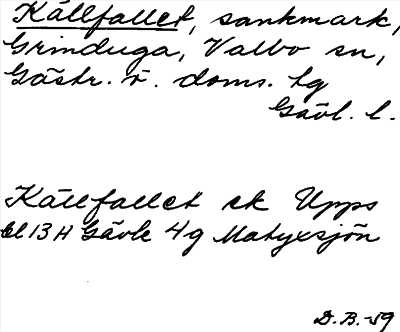 Källfallet, sankmark,
Grinduga, Valbo sn,
Gästr. ö. doms. hg
Gävl. l.
Källfallet ek Upps
bl 13 H Gävle 4g Matyxsjön
D.B.-59